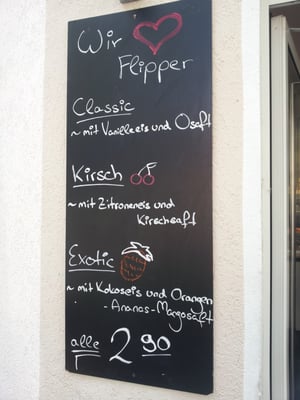 Wir
Flipper
Classic
~ mit Vanilleeis und Osaft
Kirsch
~ mit Zitroneneis und
Kirschsaft
Exotic
~ mit Kokoseis und Orangen
-Ananas-Mangosaft
alle 2 90